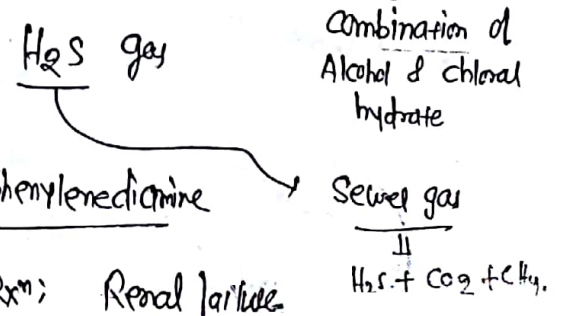 H2S gas
Combination of
Alcohol & chloral
hydrate
henylenediamine
Sewer gas
H2S + CO2 + CH4.
Rxn; Renal failure